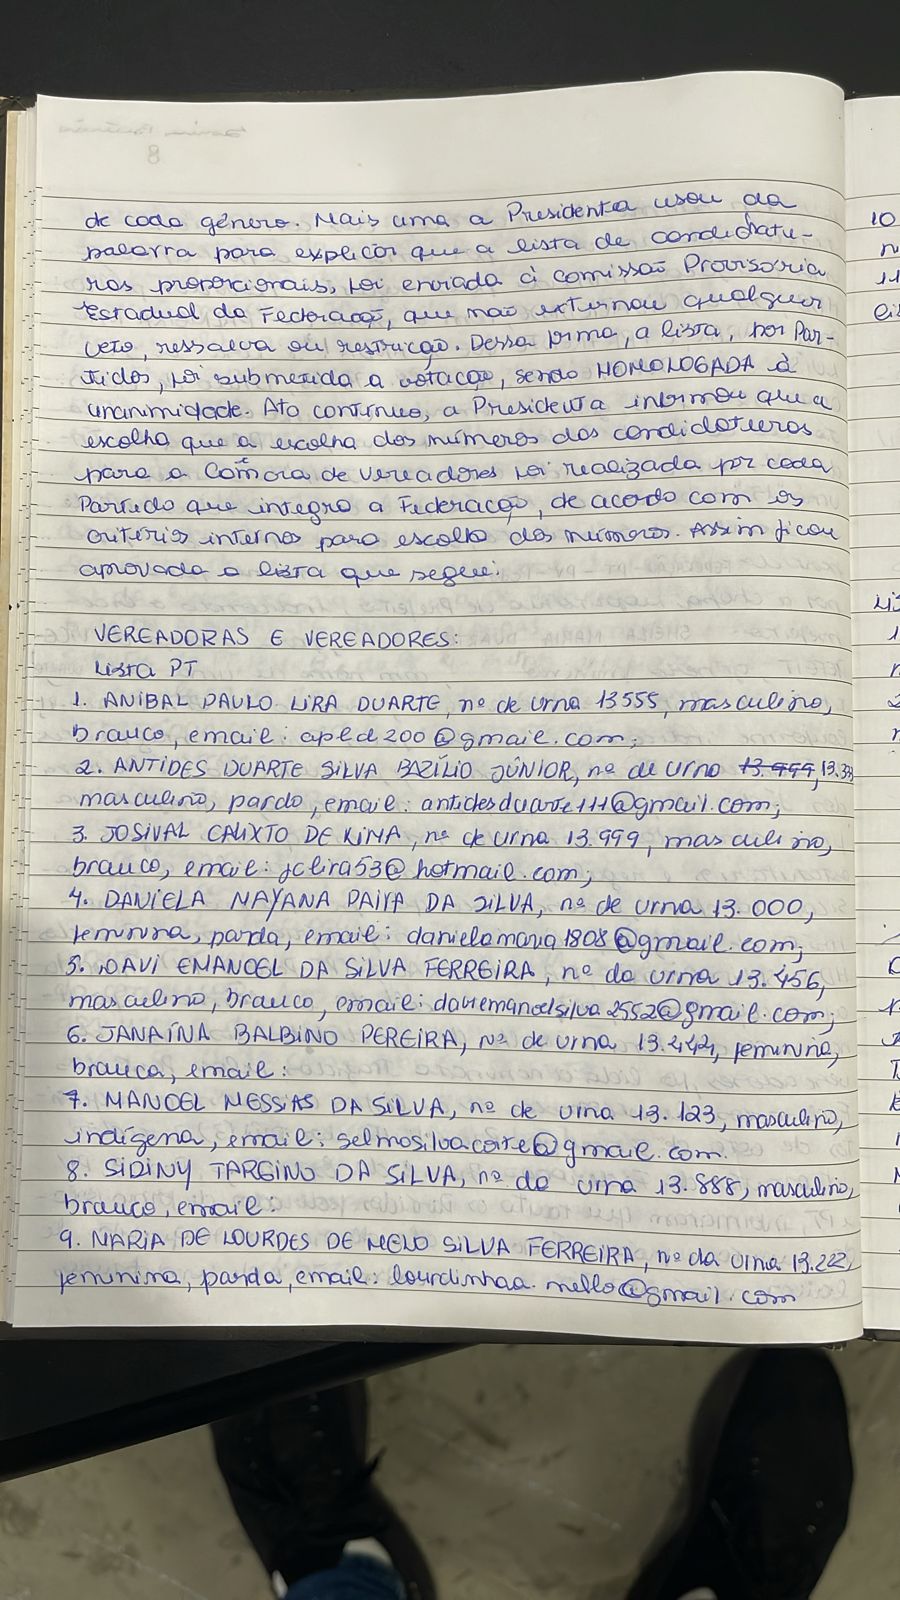 de cada gênero. Mais uma a Presidenta usou da
palavra para explicar que a lista de candidatu-
ras proporcionais, foi enviada à comissão Provisória
Estadual da Federação, que não externou qualquer
veto, ressalva ou restrição. Dessa forma, a lista, por Par-
tidos, foi submetida a votação, sendo HOMOLOGADA à
unanimidade. Ato contínuo, a Presidenta informou que a
escolha que a escolha dos números das candidaturas
para a Câmara de Vereadores foi realizada por cada
Partido que integra a Federação, de acordo com os
critérios internos para escolha dos números. Assim ficou
aprovada a lista que segue:
VEREADORAS E VEREADORES:
Lista PT
1. ANIBAL PAULO LIRA DUARTE, nº de urna 13555, masculino,
branco, email: apld200@gmail.com;
2. ANTIDES DUARTE SILVA BAZÍLIO JÚNIOR, nº de urna 13.999, 13.33
masculino, pardo, email: antidesduarte111@gmail.com;
3. JOSIVAL CALIXTO DE LIMA, nº de urna 13.999, masculino,
branco, email: jclira53@hotmail.com;
4. DANIELA MAYANA PAIVA DA SILVA, nº de urna 13.000,
feminina, parda, email: danielamaya1808@gmail.com;
5. DAVI EMANOEL DA SILVA FERREIRA, nº da urna 13.456,
masculino, branco, email: daviemanoelsilva2552@gmail.com;
6. JANAÍNA BALBINO PEREIRA, nº de urna 13.444, feminina,
branca, email:
7. MANOEL MESSIAS DA SILVA, nº de urna 13.123, masculino,
indígena, email: selmosilvacaite@gmail.com.
8. SIDINY TARGINO DA SILVA, nº da urna 13.888, masculino,
branco, email:
9. MARIA DE LOURDES DE MELO SILVA FERREIRA, nº da urna 13.222,
feminina, parda, email: lourdinhaa.mello@gmail.com
10